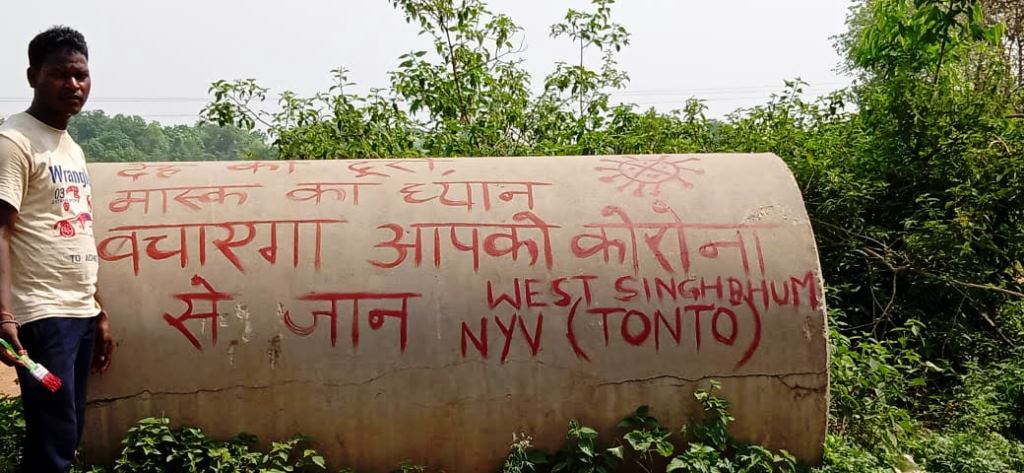 देह की दूरी
मास्क का ध्यान
बचाएगा आपको कोरोना
से जान WEST SINGHBHUM
NYV (TONTO)
Wrangl
03